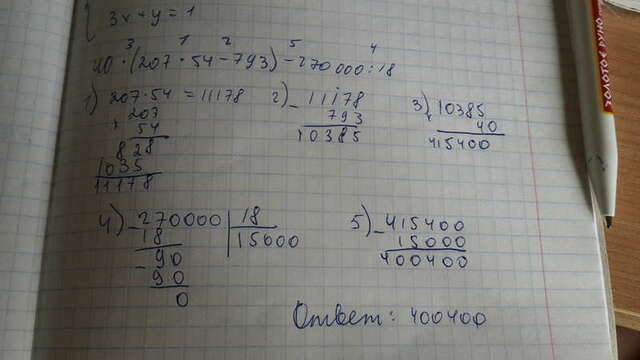 3x + 4y = 1
3 1 2 5 4
40 · (207 · 54 - 793) - 270 000 : 18
1) 207 · 54 = 11178
× 207
54
828
1035
11178
2) - 11178
793
10385
3) × 10385
40
415400
4) - 270000 | 18
18 15000
- 90
90
0
5) - 415400
15000
400400
Ответ: 400400